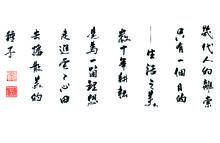 幾代人的
只有一個目的
——生活之美
數十年耕耘
是為一個理想
走進心田
去播散美的
種子